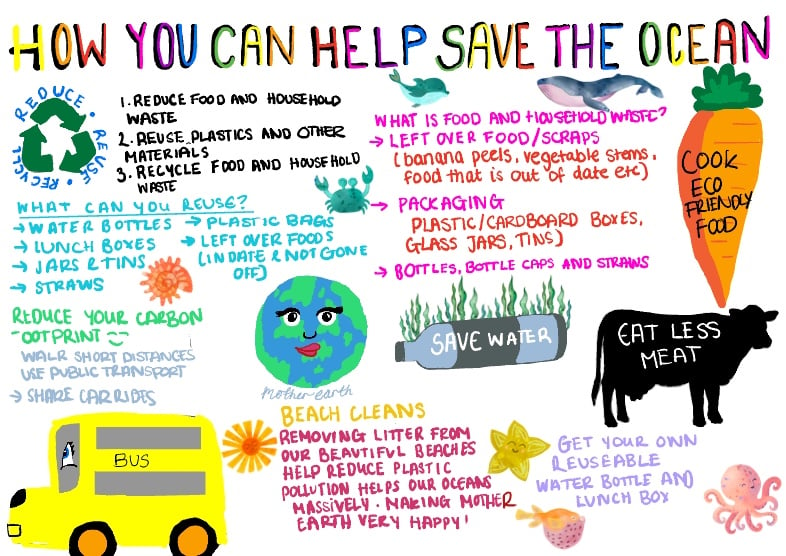 HOW YOU CAN HELP SAVE THE OCEAN
REDUCE • REUSE • RECYCLE •
1. REDUCE FOOD AND HOUSEHOLD
WASTE
2. REUSE PLASTICS AND OTHER
MATERIALS
3. RECYCLE FOOD AND HOUSEHOLD
WASTE
WHAT IS FOOD AND HOUSEHOLD WASTE?
→ LEFT OVER FOOD/SCRAPS
(banana peels, vegetable stems,
food that is out of date etc)
→ PACKAGING
PLASTIC/CARDBOARD BOXES,
GLASS JARS, TINS)
→ BOTTLES, BOTTLE CAPS AND STRAWS
COOK
ECO
FRIENDLY
FOOD
WHAT CAN YOU REUSE?
→ WATER BOTTLES
→ LUNCH BOXES
→ JARS & TINS
→ STRAWS
→ PLASTIC BAGS
→ LEFT OVER FOODS
(IN DATE & NOT GONE
OFF)
REDUCE YOUR CARBON
OOTPRINT
WALK SHORT DISTANCES
USE PUBLIC TRANSPORT
→ SHARE CAR RIDES
mother-earth
SAVE WATER
EAT LESS
MEAT
BUS
BEACH CLEANS
REMOVING LITTER FROM
OUR BEAUTIFUL BEACHES
HELP REDUCE PLASTIC
POLLUTION HELPS OUR OCEANS
MASSIVELY. MAKING MOTHER
EARTH VERY HAPPY!
GET YOUR OWN
REUSEABLE
WATER BOTTLE AND
LUNCH BOX